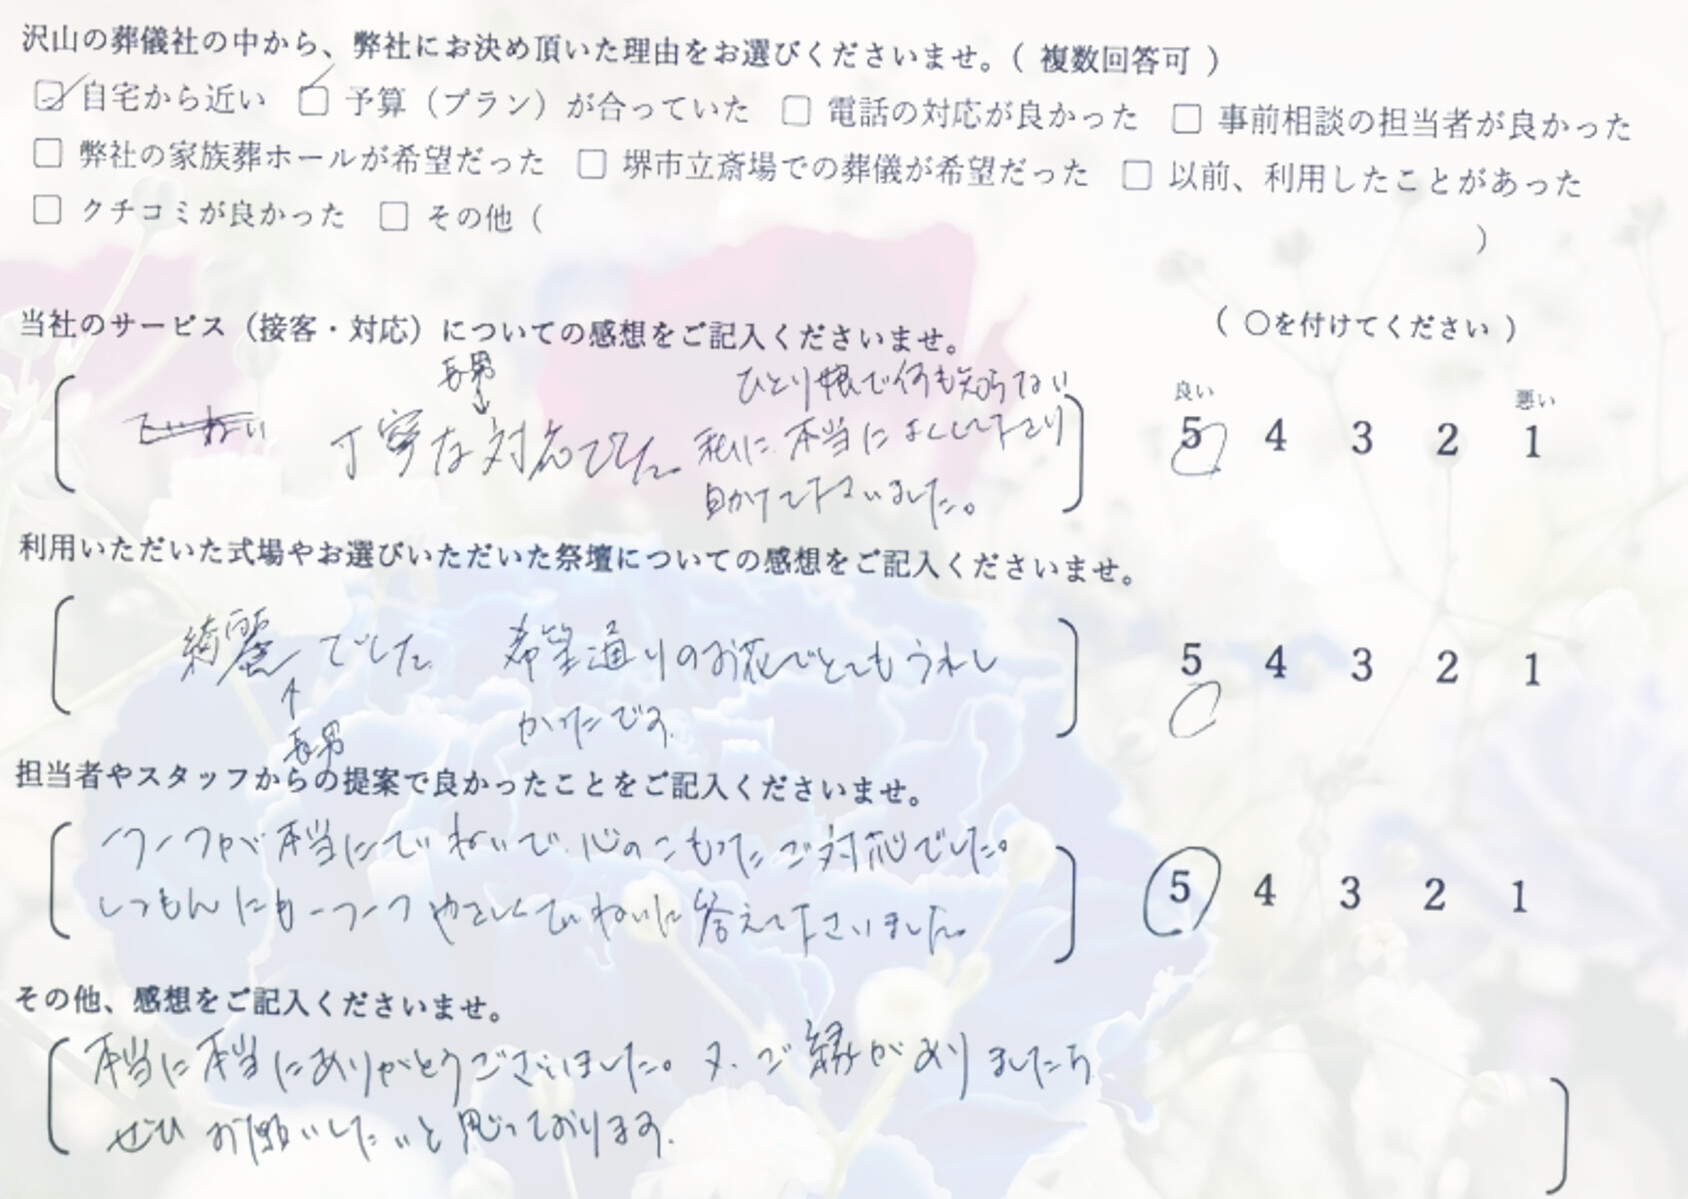 沢山の葬儀社の中から、弊社にお決め頂いた理由をお選びくださいませ。( 複数回答可 )
☑ 自宅から近い ☑ 予算（プラン）が合っていた □ 電話の対応が良かった □ 事前相談の担当者が良かった
□ 弊社の家族葬ホールが希望だった □ 堺市立斎場での葬儀が希望だった □ 以前、利用したことがあった
□ クチコミが良かった □ その他（ ）
当社のサービス（接客・対応）についての感想をご記入くださいませ。 （ ○を付けてください ）
長男
↓
ていねい 丁寧な対応でした。
ひとり娘で何も知らない
私に本当によくして下さり
助けて下さいました。
良い 悪い
5 4 3 2 1
利用いただいた式場やお選びいただいた祭壇についての感想をご記入くださいませ。
綺麗でした。 希望通りのお花でとてもうれし
かったです。
↑
長男
5 4 3 2 1
担当者やスタッフからの提案で良かったことをご記入くださいませ。
一つ一つが本当にていねいで、心のこもったご対応でした。
しつもんにも一つ一つやさしくていねいに答えて下さいました。
5 4 3 2 1
その他、感想をご記入くださいませ。
本当に本当にありがとうございました。又、ご縁がありましたら
ぜひお願いしたいと思っております。